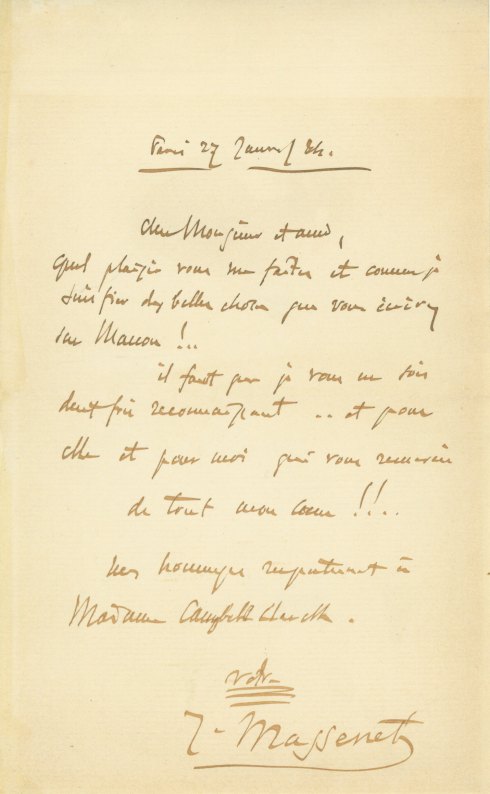 Paris 27 Janv / 84.
Cher Monsieur et ami,
quel plaisir vous me faites et comme je
suis fier des belles choses que vous écrivez
sur Manon !..
il faut que je vous en sois
deux fois reconnaissant .. et pour
elle et pour moi qui vous remercie
de tout mon cœur !!..
mes hommages respectueux à
Madame Campbell Clarke.
votre
J. Massenet